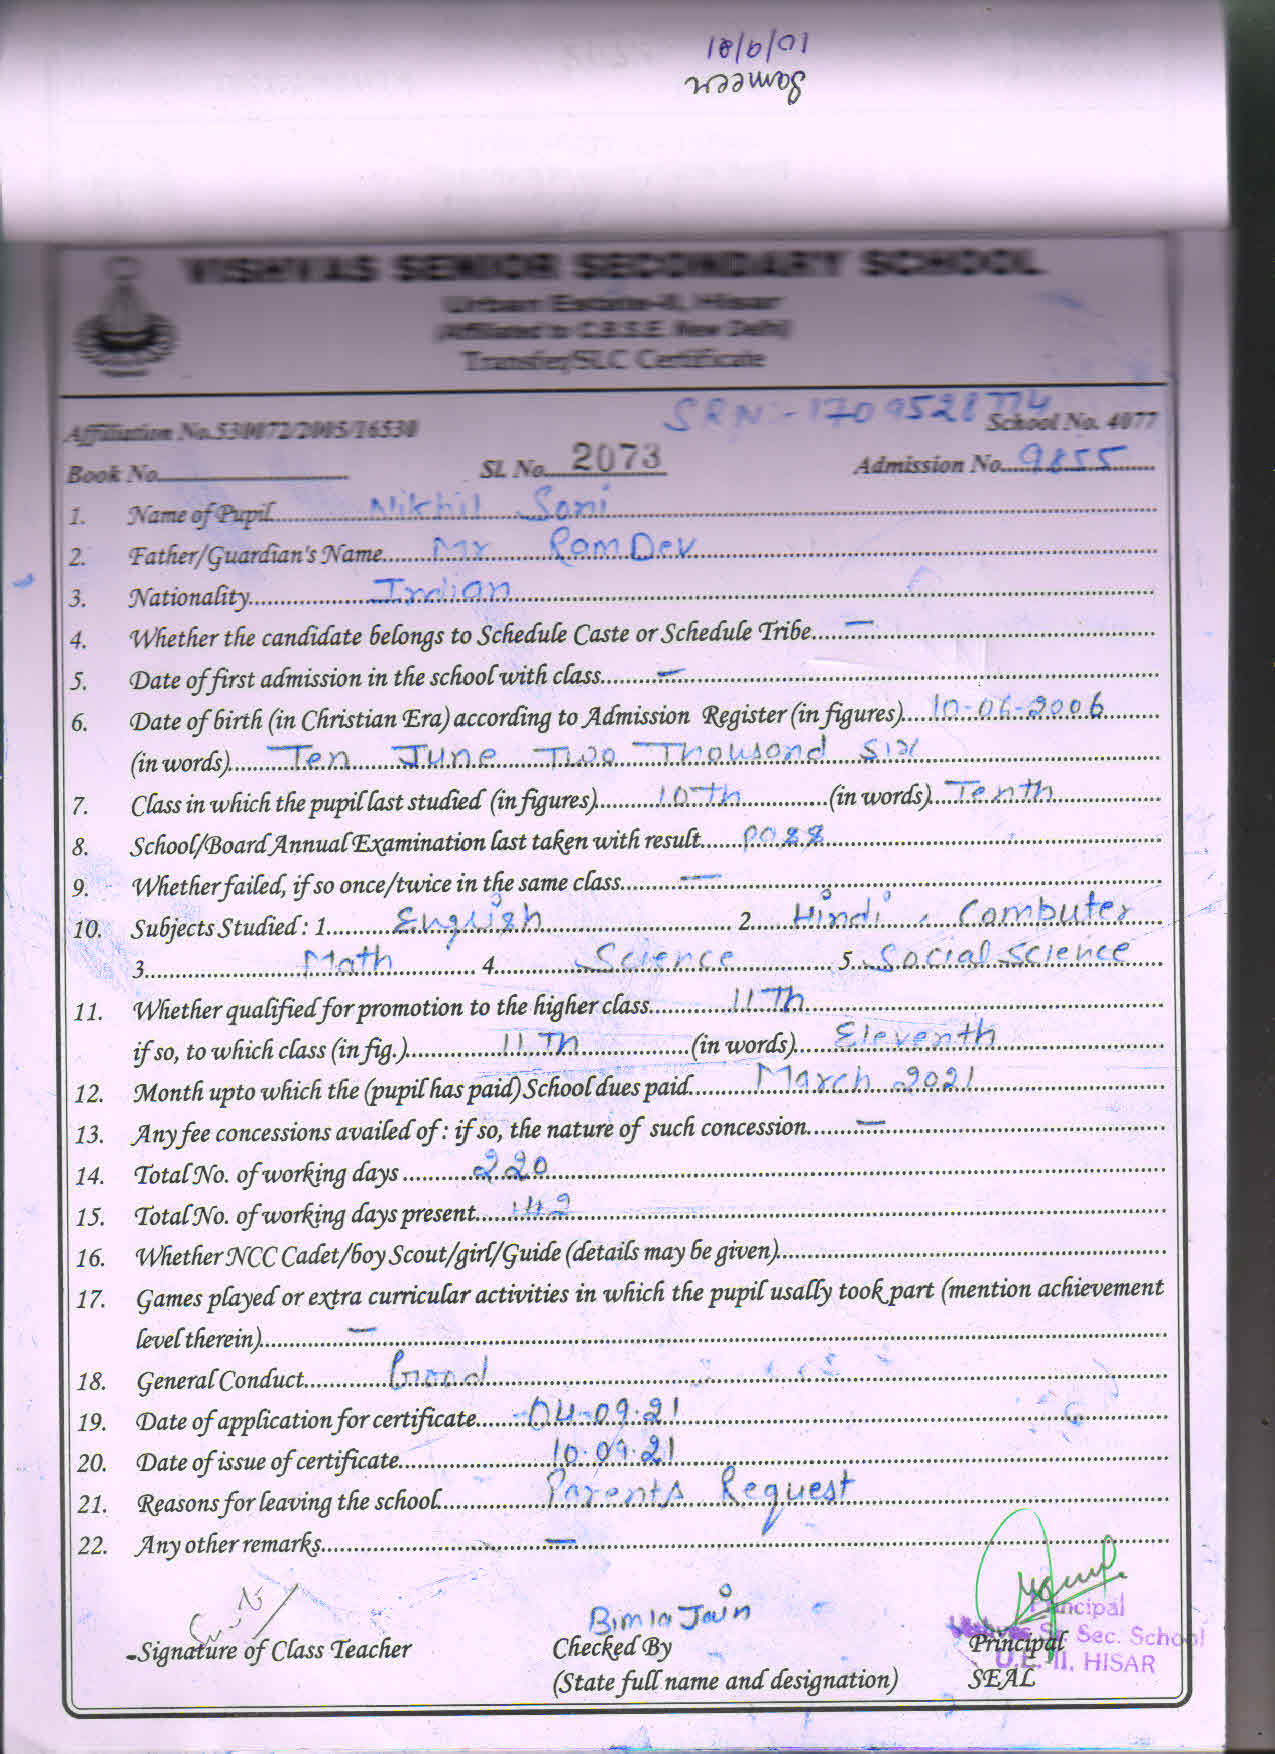 10/9/21
Sameen
VISHVAS SENIOR SECONDARY SCHOOL
Urban Estate-II, Hisar
(Affiliated to C.B.S.E. New Delhi)
Transfer/SLC Certificate
SRN:- 1709528774
Affiliation No.530072/2005/16530 School No. 4077
Book No. SL No. 2073 Admission No. 9855
1. Name of Pupil Nikhil Soni
2. Father/Guardian's Name Mr Ram Dev
3. Nationality Indian
4. Whether the candidate belongs to Schedule Caste or Schedule Tribe —
5. Date of first admission in the school with class —
6. Date of birth (in Christian Era) according to Admission Register (in figures) 10-06-2006
(in words) Ten June Two Thousand Six
7. Class in which the pupil last studied (in figures) 10Th (in words) Tenth
8. School/Board Annual Examination last taken with result Pass
9. Whether failed, if so once/twice in the same class —
10. Subjects Studied : 1. English 2. Hindi , Computer
3. Math 4. Science 5. Social Science
11. Whether qualified for promotion to the higher class 11Th
if so, to which class (in fig.) 11Th (in words) Eleventh
12. Month upto which the (pupil has paid) School dues paid March 2021
13. Any fee concessions availed of : if so, the nature of such concession —
14. Total No. of working days 220
15. Total No. of working days present 142
16. Whether NCC Cadet/boy Scout/girl/Guide (details may be given)
17. Games played or extra curricular activities in which the pupil usally took part (mention achievement
level therein) —
18. General Conduct Good
19. Date of application for certificate 04-09-21
20. Date of issue of certificate 10.09.21
21. Reasons for leaving the school Parents Request
22. Any other remarks —
Bimla Jain
Principal
Sr. Sec. School
U.E. II, HISAR
Signature of Class Teacher Checked By Principal
(State full name and designation) SEAL